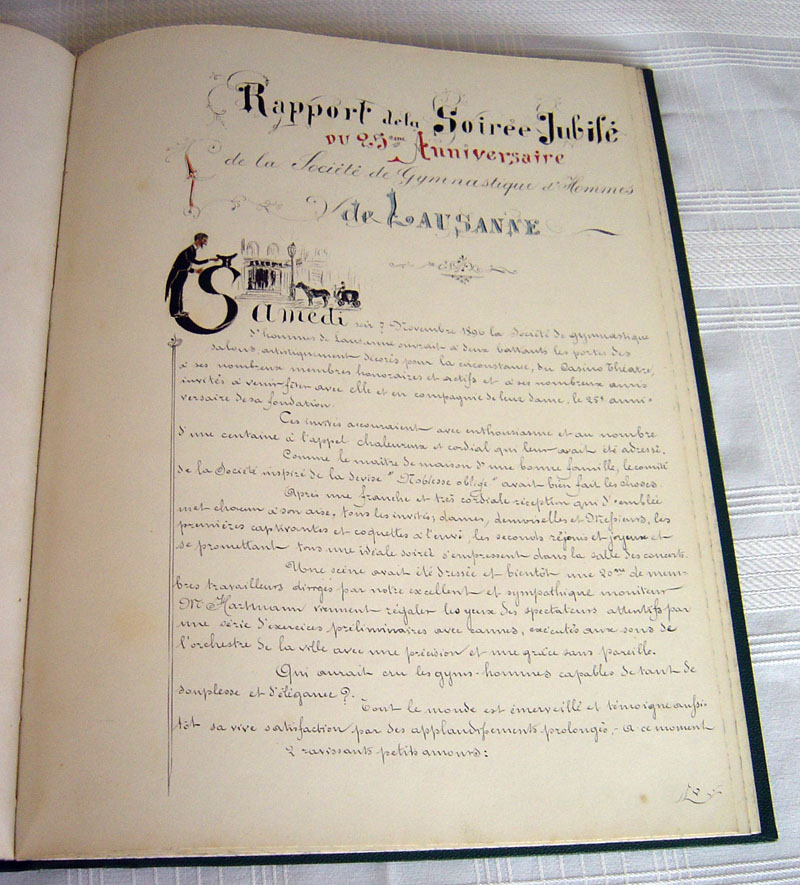 Rapport de la Soirée Jubilé
du 25ème Anniversaire
de la Société de Gymnastique d'Hommes
de Lausanne
Samedi soir 7 Novembre 1896 la Société de gymnastique
d'hommes de Lausanne ouvrait à deux battants les portes des
salons, artistiquement décorés pour la circonstance, du Casino Théatre,
à ses nombreux membres honoraires et actifs et à ses nombreux amis
invités à venir fêter avec elle et en compagnie de leur dame, le 25e anni-
versaire de sa fondation.
Ces invités accouraient avec enthousiasme et au nombre
d'une centaine à l'appel chaleureux et cordial qui leur avait été adressé.
Comme le maître de maison d'une bonne famille, le comité
de la Société inspiré de la devise "Noblesse oblige" avait bien fait les choses.
Après une franche et très cordiale réception qui d'emblée
met chacun à son aise, tous les invités, dames, demoiselles et Messieurs, les
premières captivantes et coquettes à l'envi, les seconds réjouis et joyeux et
se promettant tous une idéale soirée s'empressent dans la salle des concerts.
Une scène avait été dressée et bientôt une 20ne de mem-
bres travailleurs dirigés par notre excellent et sympathique moniteur
Mr Hartmann viennent régaler les yeux des spectateurs attentifs par
une série d'exercices préliminaires avec cannes, exécutés aux sons de
l'orchestre de la ville avec une précision et une grâce sans pareille.
Qui aurait cru les gyms-hommes capables de tant de
souplesse et d'élégance ?.
Tout le monde est émerveillé et témoigne aussi-
tôt sa vive satisfaction par des applaudissements prolongés. - A ce moment
2 ravissants petits amours :